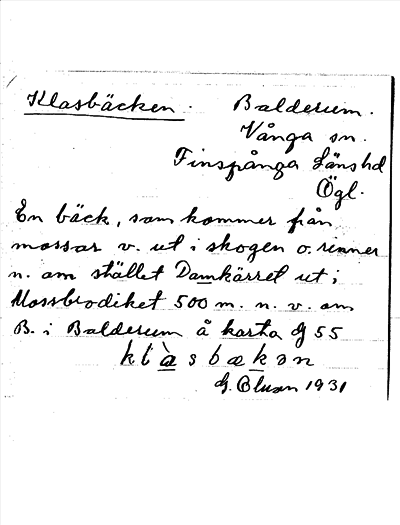 Klasbäcken. Balderum.
Vånga sn.
Finspånga Länshd
Ögl.
En bäck, som kommer från
mossar v. ut i skogen o. rinner
n. om stället Damkärret ut i
Mossbrodiket 500 m. n. v. om
B. i Balderum å karta G 55
klàsbækən
G. Bluan 1931